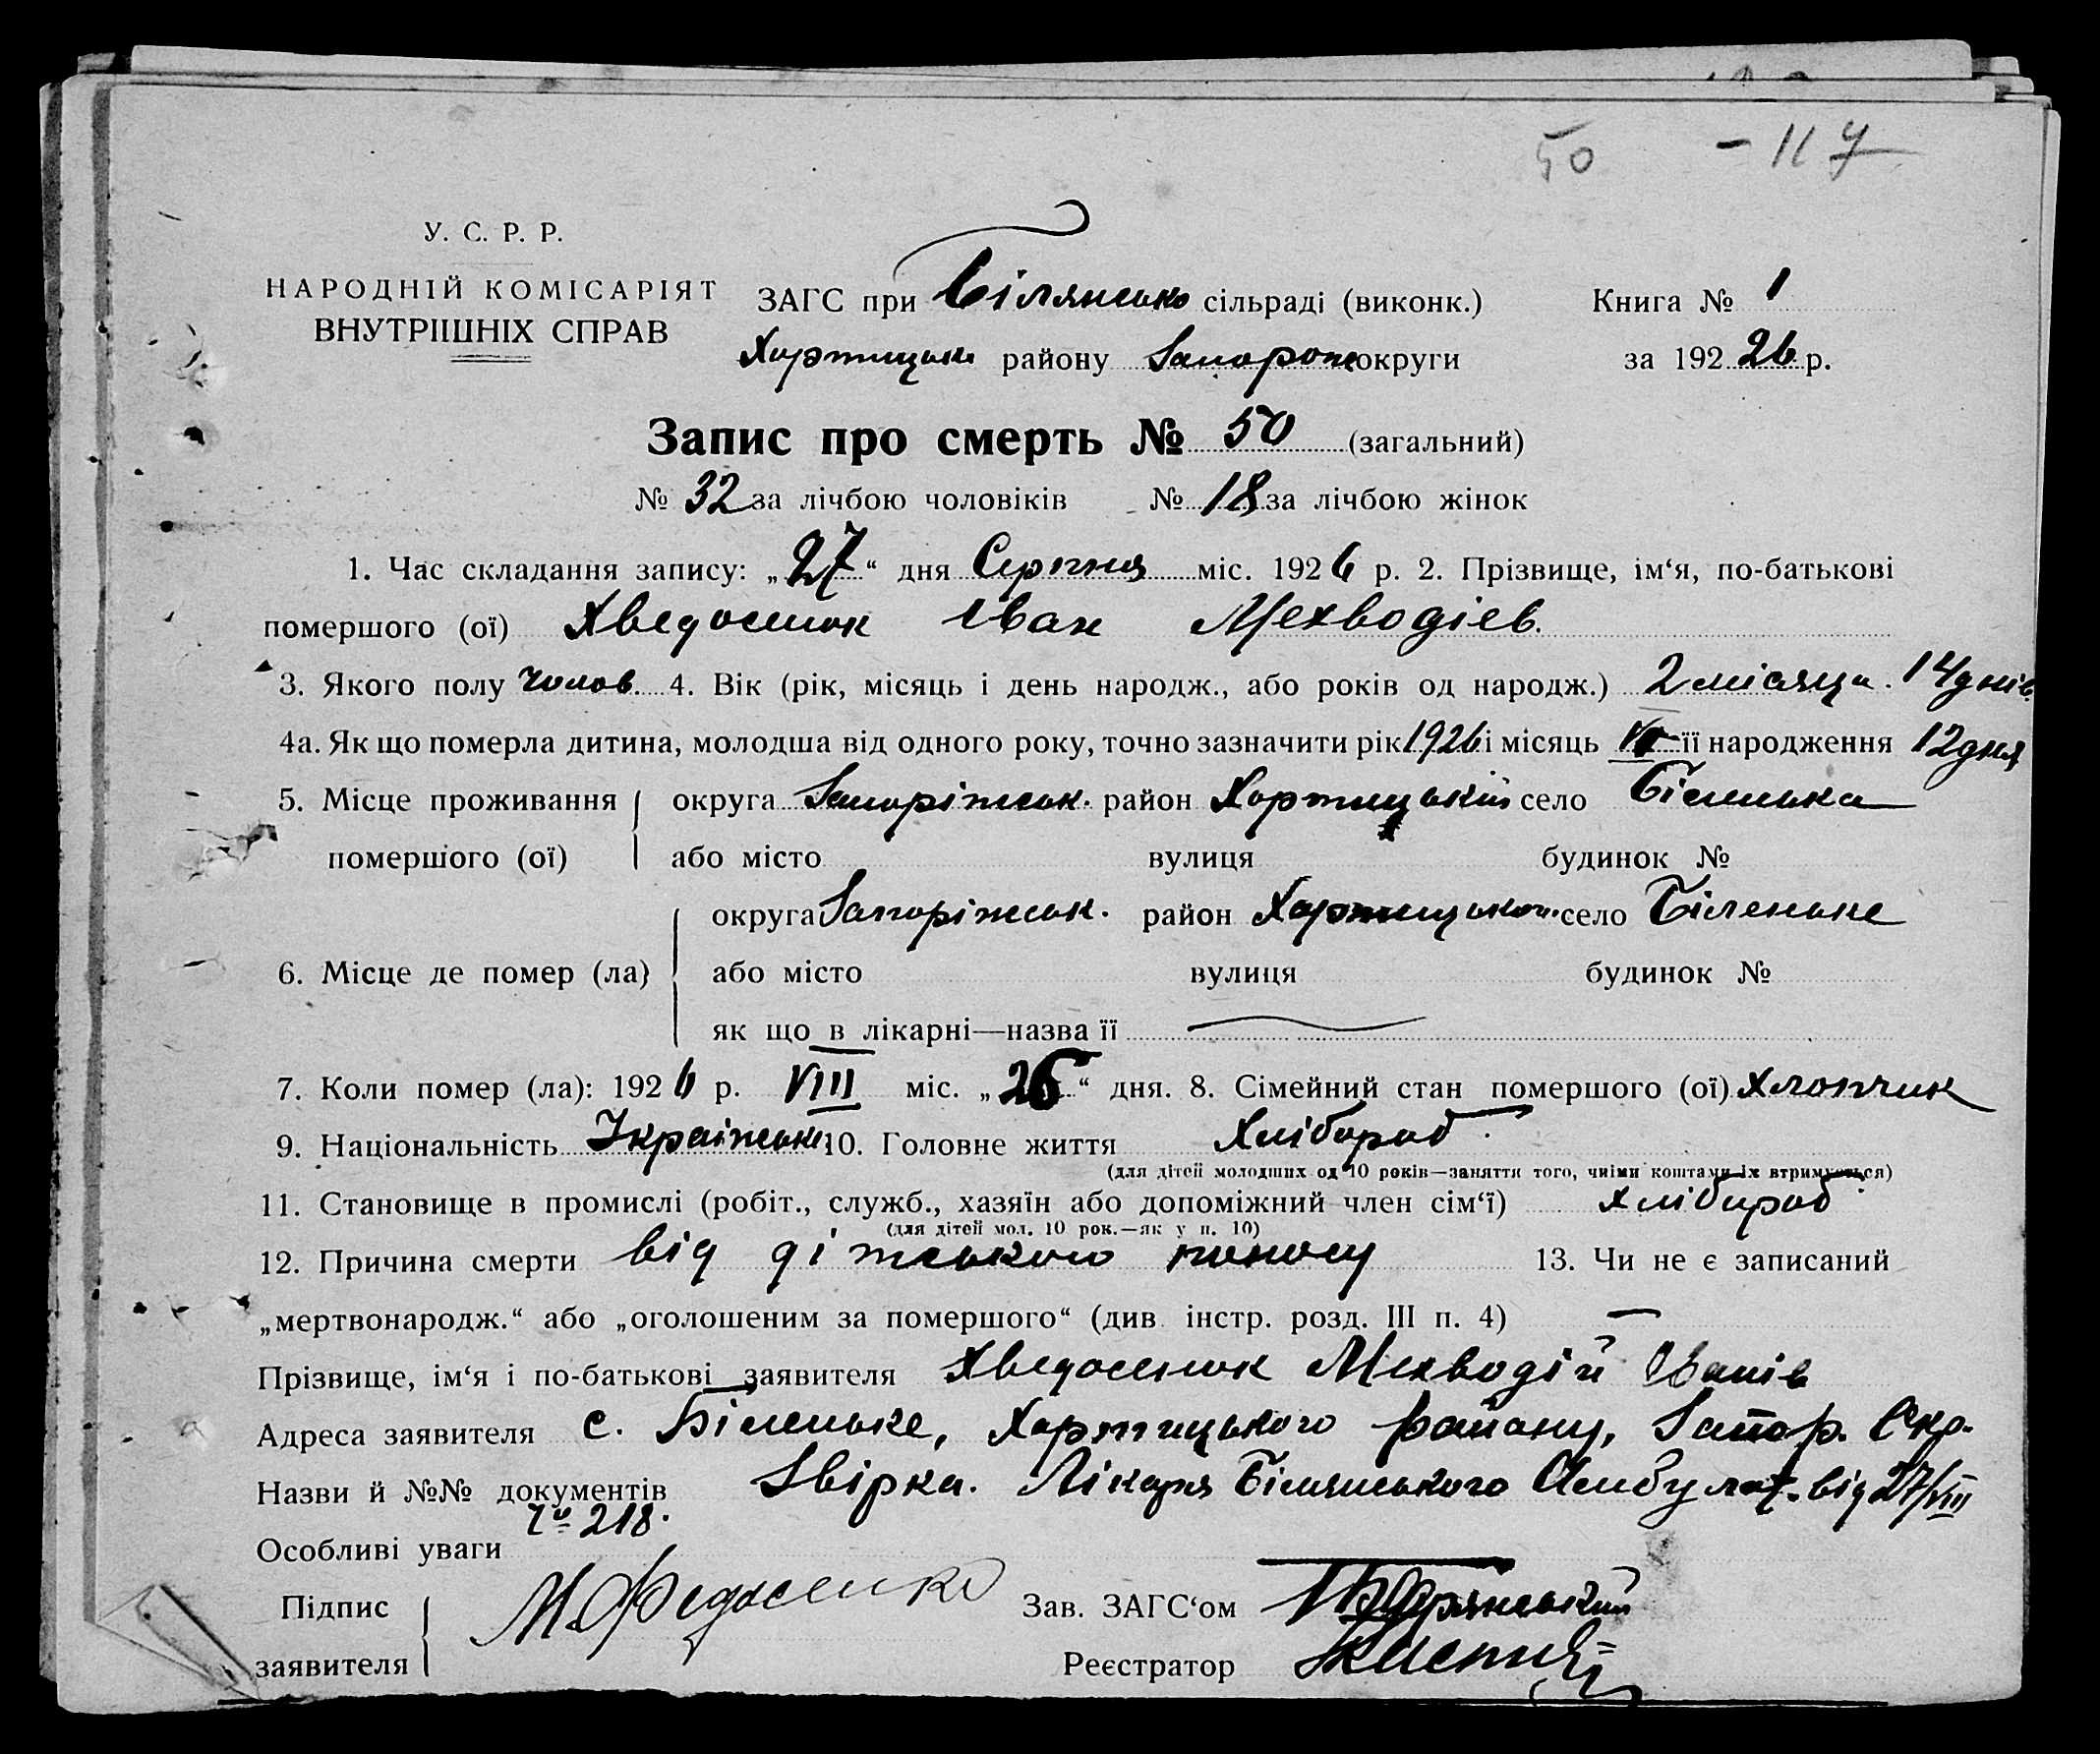 50 - 117
У. С. Р. Р.
НАРОДНІЙ КОМІСАРІЯТ
ВНУТРІШНІХ СПРАВ
ЗАГС при Білянсько сільраді (виконк.) Книга № 1
Хортицьк району Запорож округи за 192 26 р.
Запис про смерть № 50 (загальний)
№ 32 за лічбою чоловіків № 18 за лічбою жінок
1. Час складання запису: „27“ дня Серпня міс. 1926 р. 2. Прізвище, ім‘я, по-батькові
помершого (ої) Хведосенок Іван Мехводіев.
3. Якого полу чолов. 4. Вік (рік, місяць і день народж., або років од народж.) 2 місяця. 14 днів
4а. Як що померла дитина, молодша від одного року, точно зазначити рік 1926 і місяць її народження 12 дня
5. Місце проживання округа Запоріжськ. район Хортицький село Біленька
помершого (ої) або місто вулиця будинок №
округа Запоріжськ. район село Біленьке
6. Місце де помер (ла) або місто вулиця будинок №
як що в лікарні—назва її
7. Коли помер (ла): 1926 р. VIII міс. „26“ дня. 8. Сімейний стан помершого (ої) хлопчик
9. Національність 10. Головне життя Хлібороб.
(для дітей молодших од 10 років—заняття того, чиїми коштами їх втримується)
11. Становище в промислі (робіт., служб., хазяїн або допоміжний член сім‘ї) хлібороб
(для дітей мол. 10 рок.—як у п. 10)
12. Причина смерти від дітського поносу 13. Чи не є записаний
„мертвонародж.“ або „оголошеним за помершого“ (див. інстр. розд. III п. 4) —
Прізвище, ім‘я і по-батькові заявителя Хведосенок Мехводій Іванів
Адреса заявителя с. Біленьке, Хортицького району, Запор. Окр.
Назви й №№ документів Звірка. Лікаря Білянського Амбулат. від 27/VIII
218.
Особливі уваги
Підпис М. Федосенко Зав. ЗАГС‘ом
заявителя Реєстратор